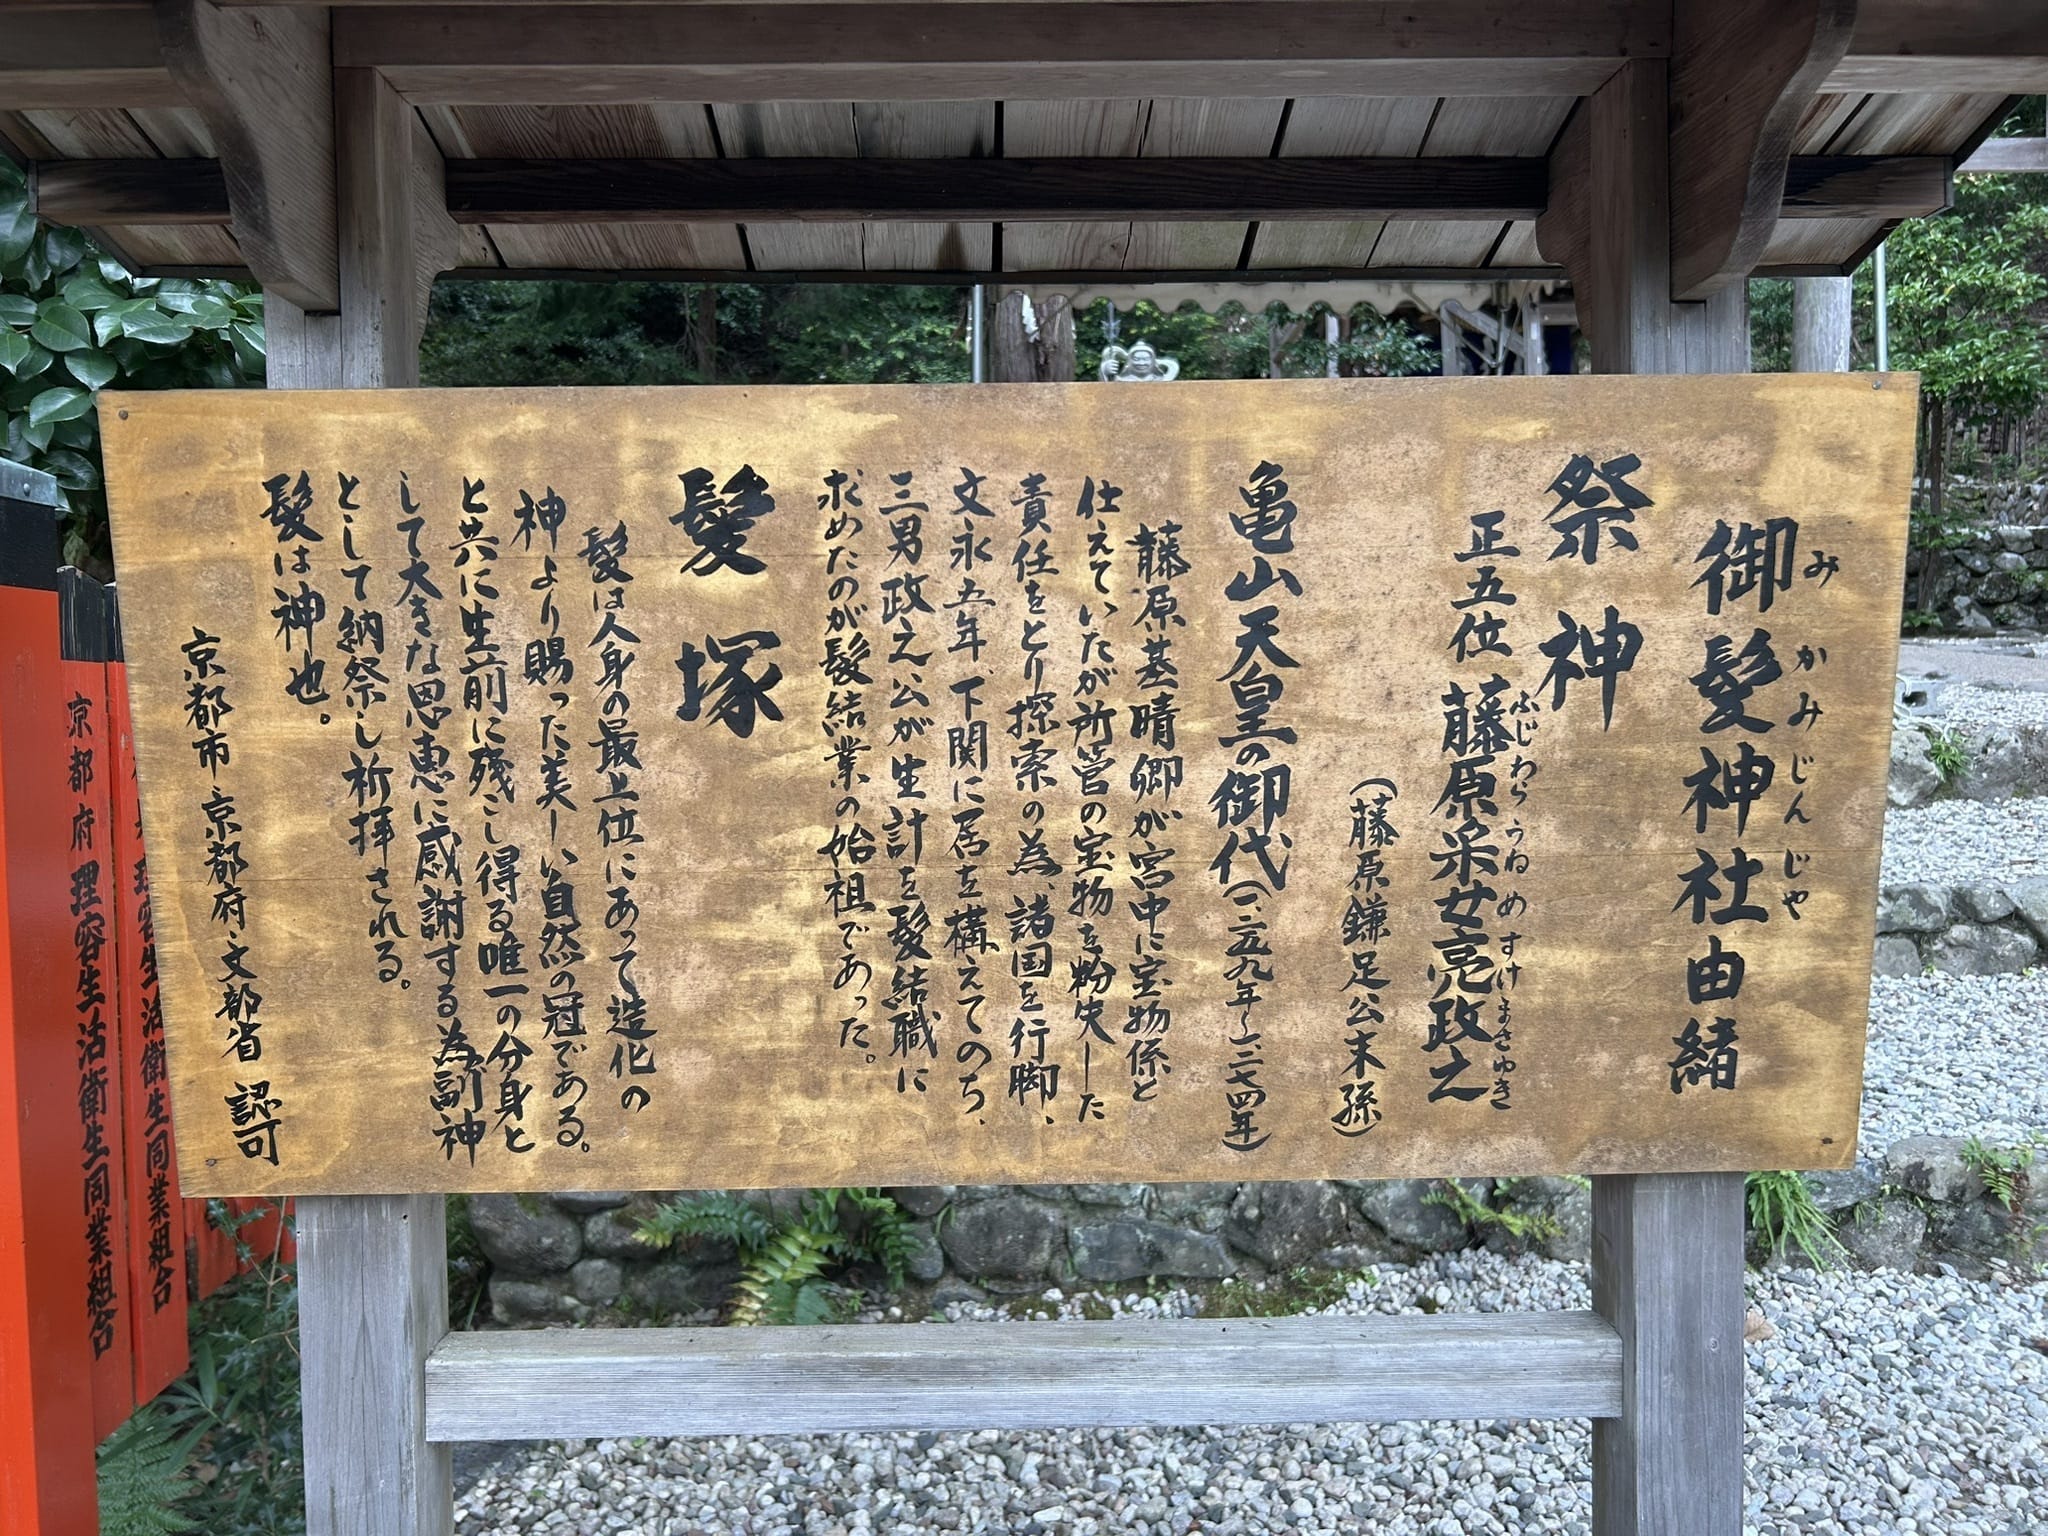 御髪神社由緒
みかみじんじゃ
祭神
正五位 藤原采女亮政之
ふじわらうねめすけまさゆき
(藤原鎌足公末孫)
亀山天皇の御代(一二五九年〜一二七四年)
藤原基晴卿が宮中に宝物係と
仕えていたが所管の宝物を紛失した
責任をとり探索の為、諸国を行脚、
文永五年、下関に居を構えてのち、
三男政之公が生計を髪結職に
求めたのが髪結業の始祖であった。
髪塚
髪は人身の最上位にあって造化の
神より賜った美しい自然の冠である。
と共に生前に残こし得る唯一の分身と
して大きな恩恵に感謝する為副神
として納祭し祈拝される。
髪は神也。
京都市・京都府・文部省 認可
理容生活衛生同業組合
京都府理容生活衛生同業組合